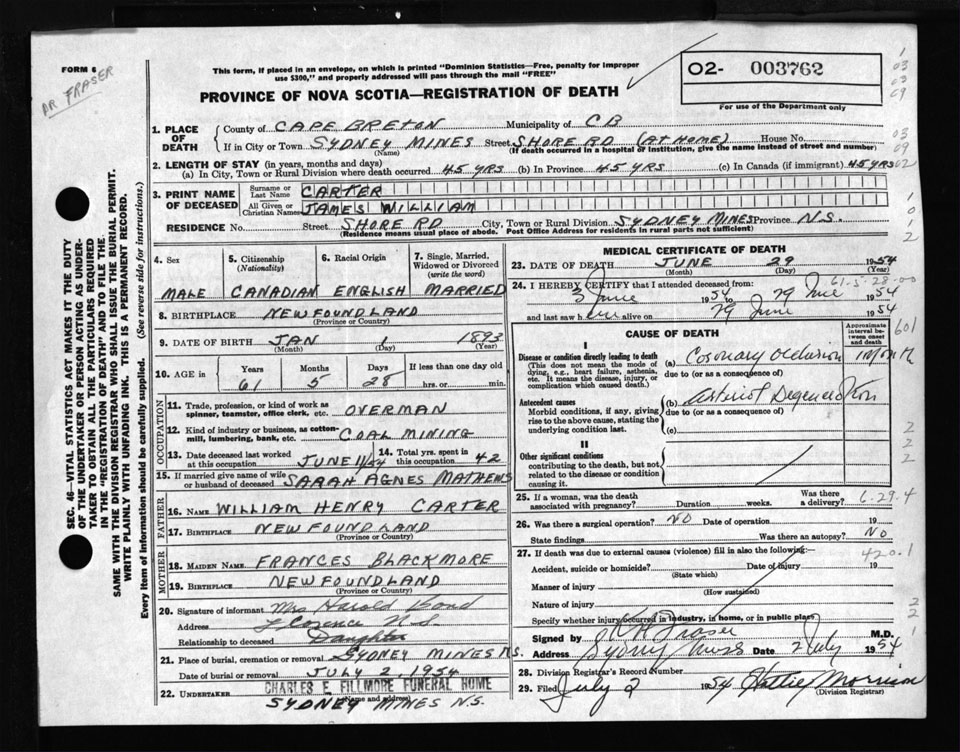 FORM 6
DR. FRASER
This form, if placed in an envelope, on which is printed "Dominion Statistics—Free, penalty for improper
use $300," and properly addressed will pass through the mail "FREE"
PROVINCE OF NOVA SCOTIA—REGISTRATION OF DEATH
02- 003762
For use of the Department only
1. PLACE OF DEATH
County of CAPE BRETON Municipality of CB
If in City or Town SYDNEY MINES Street SHORE RD (AT HOME) House No.
(Name) (If death occurred in a hospital or institution, give the name instead of street and number)
2. LENGTH OF STAY (in years, months and days)
(a) In City, Town or Rural Division where death occurred 45 YRS (b) In Province 45 YRS (c) In Canada (if immigrant) 45 YRS
3. PRINT NAME OF DECEASED
Surname or Last Name CARTER
All Given or Christian Names JAMES WILLIAM
RESIDENCE No. Street SHORE RD City, Town or Rural Division SYDNEY MINES Province N.S.
(Residence means usual place of abode. Post Office Address for residents in rural parts not sufficient)
SEC. 46—VITAL STATISTICS ACT MAKES IT THE DUTY
OF THE UNDERTAKER OR PERSON ACTING AS UNDER-
TAKER TO OBTAIN ALL THE PARTICULARS REQUIRED
IN THE "REGISTRATION OF DEATH" AND TO FILE THE
SAME WITH THE DIVISION REGISTRAR WHO SHALL ISSUE THE BURIAL PERMIT.
WRITE PLAINLY WITH UNFADING INK. THIS IS A PERMANENT RECORD.
Every item of information should be carefully supplied. (See reverse side for instructions.)
4. Sex
MALE
5. Citizenship (Nationality)
CANADIAN
6. Racial Origin
ENGLISH
7. Single, Married, Widowed or Divorced (write the word)
MARRIED
8. BIRTHPLACE NEWFOUNDLAND
(Province or Country)
9. DATE OF BIRTH JAN 1 1893
(Month) (Day) (Year)
10. AGE in Years Months Days If less than one day old
61 5 28 hrs. or min.
OCCUPATION
11. Trade, profession, or kind of work as spinner, teamster, office clerk, etc. OVERMAN
12. Kind of industry or business, as cotton-mill, lumbering, bank, etc. COAL MINING
13. Date deceased last worked at this occupation JUNE 11/54 14. Total yrs. spent in this occupation 42
15. If married give name of wife or husband of deceased SARAH AGNES MATHEWS
FATHER
16. Name WILLIAM HENRY CARTER
17. Birthplace NEWFOUNDLAND
(Province or Country)
MOTHER
18. MAIDEN NAME FRANCES BLACKMORE
19. BIRTHPLACE NEWFOUNDLAND
(Province or Country)
20. Signature of informant Mrs Harold
Address Florence N.S.
Relationship to deceased Daughter
21. Place of burial, cremation or removal SYDNEY MINES N.S.
Date of burial or removal JULY 2, 1954
22. UNDERTAKER CHARLES E. FILLMORE FUNERAL HOME
(Name and address)
SYDNEY MINES N.S.
MEDICAL CERTIFICATE OF DEATH
23. DATE OF DEATH JUNE 29 1954
(Month) (Day) (Year)
61-5-28-00
24. I HEREBY CERTIFY that I attended deceased from:
3 June 1954 to 29 June 1954
and last saw him alive on 29 June 1954
CAUSE OF DEATH
Approximate interval between onset and death
601
I
Disease or condition directly leading to death
(This does not mean the mode of dying, e.g., heart failure, asthenia, etc. It means the disease, injury, or complication which caused death.)
(a) Coronary Occlusion 1 Month
due to (or as a consequence of)
Antecedent causes
Morbid conditions, if any, giving rise to the above cause, stating the underlying condition last.
(b) Arterial Degeneration
due to (or as a consequence of)
(c)
II
Other significant conditions
contributing to the death, but not related to the disease or condition causing it.
25. If a woman, was the death associated with pregnancy? Duration weeks. Was there a delivery?
6.29.4
26. Was there a surgical operation? NO Date of operation 19
State findings Was there an autopsy? NO
27. If death was due to external causes (violence) fill in also the following:—
420.1
Accident, suicide or homicide? Date of injury 19
(State which)
Manner of injury
(How sustained)
Nature of injury
Specify whether injury occurred in industry, in home, or in public place
Signed by Fraser M.D.
Address Sydney Mines Date 2 July 1954
28. Division Registrar's Record Number
29. Filed July 2 1954 Hattie Morrison
(Division Registrar)